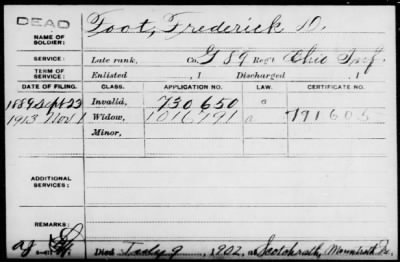 DEAD
NAME OF SOLDIER: Foot, Frederick D.
SERVICE: Late rank, Co. G 89 Reg't Ohio Inf.
TERM OF SERVICE: Enlisted , 1 Discharged , 1
DATE OF FILING. CLASS. APPLICATION NO. LAW. CERTIFICATE NO.
1889 Sept 23 Invalid, 730650 a
1913 Nov 1 Widow, 1016791 a 771605
Minor,
ADDITIONAL SERVICES:
REMARKS:
Died July 9, 1902, at